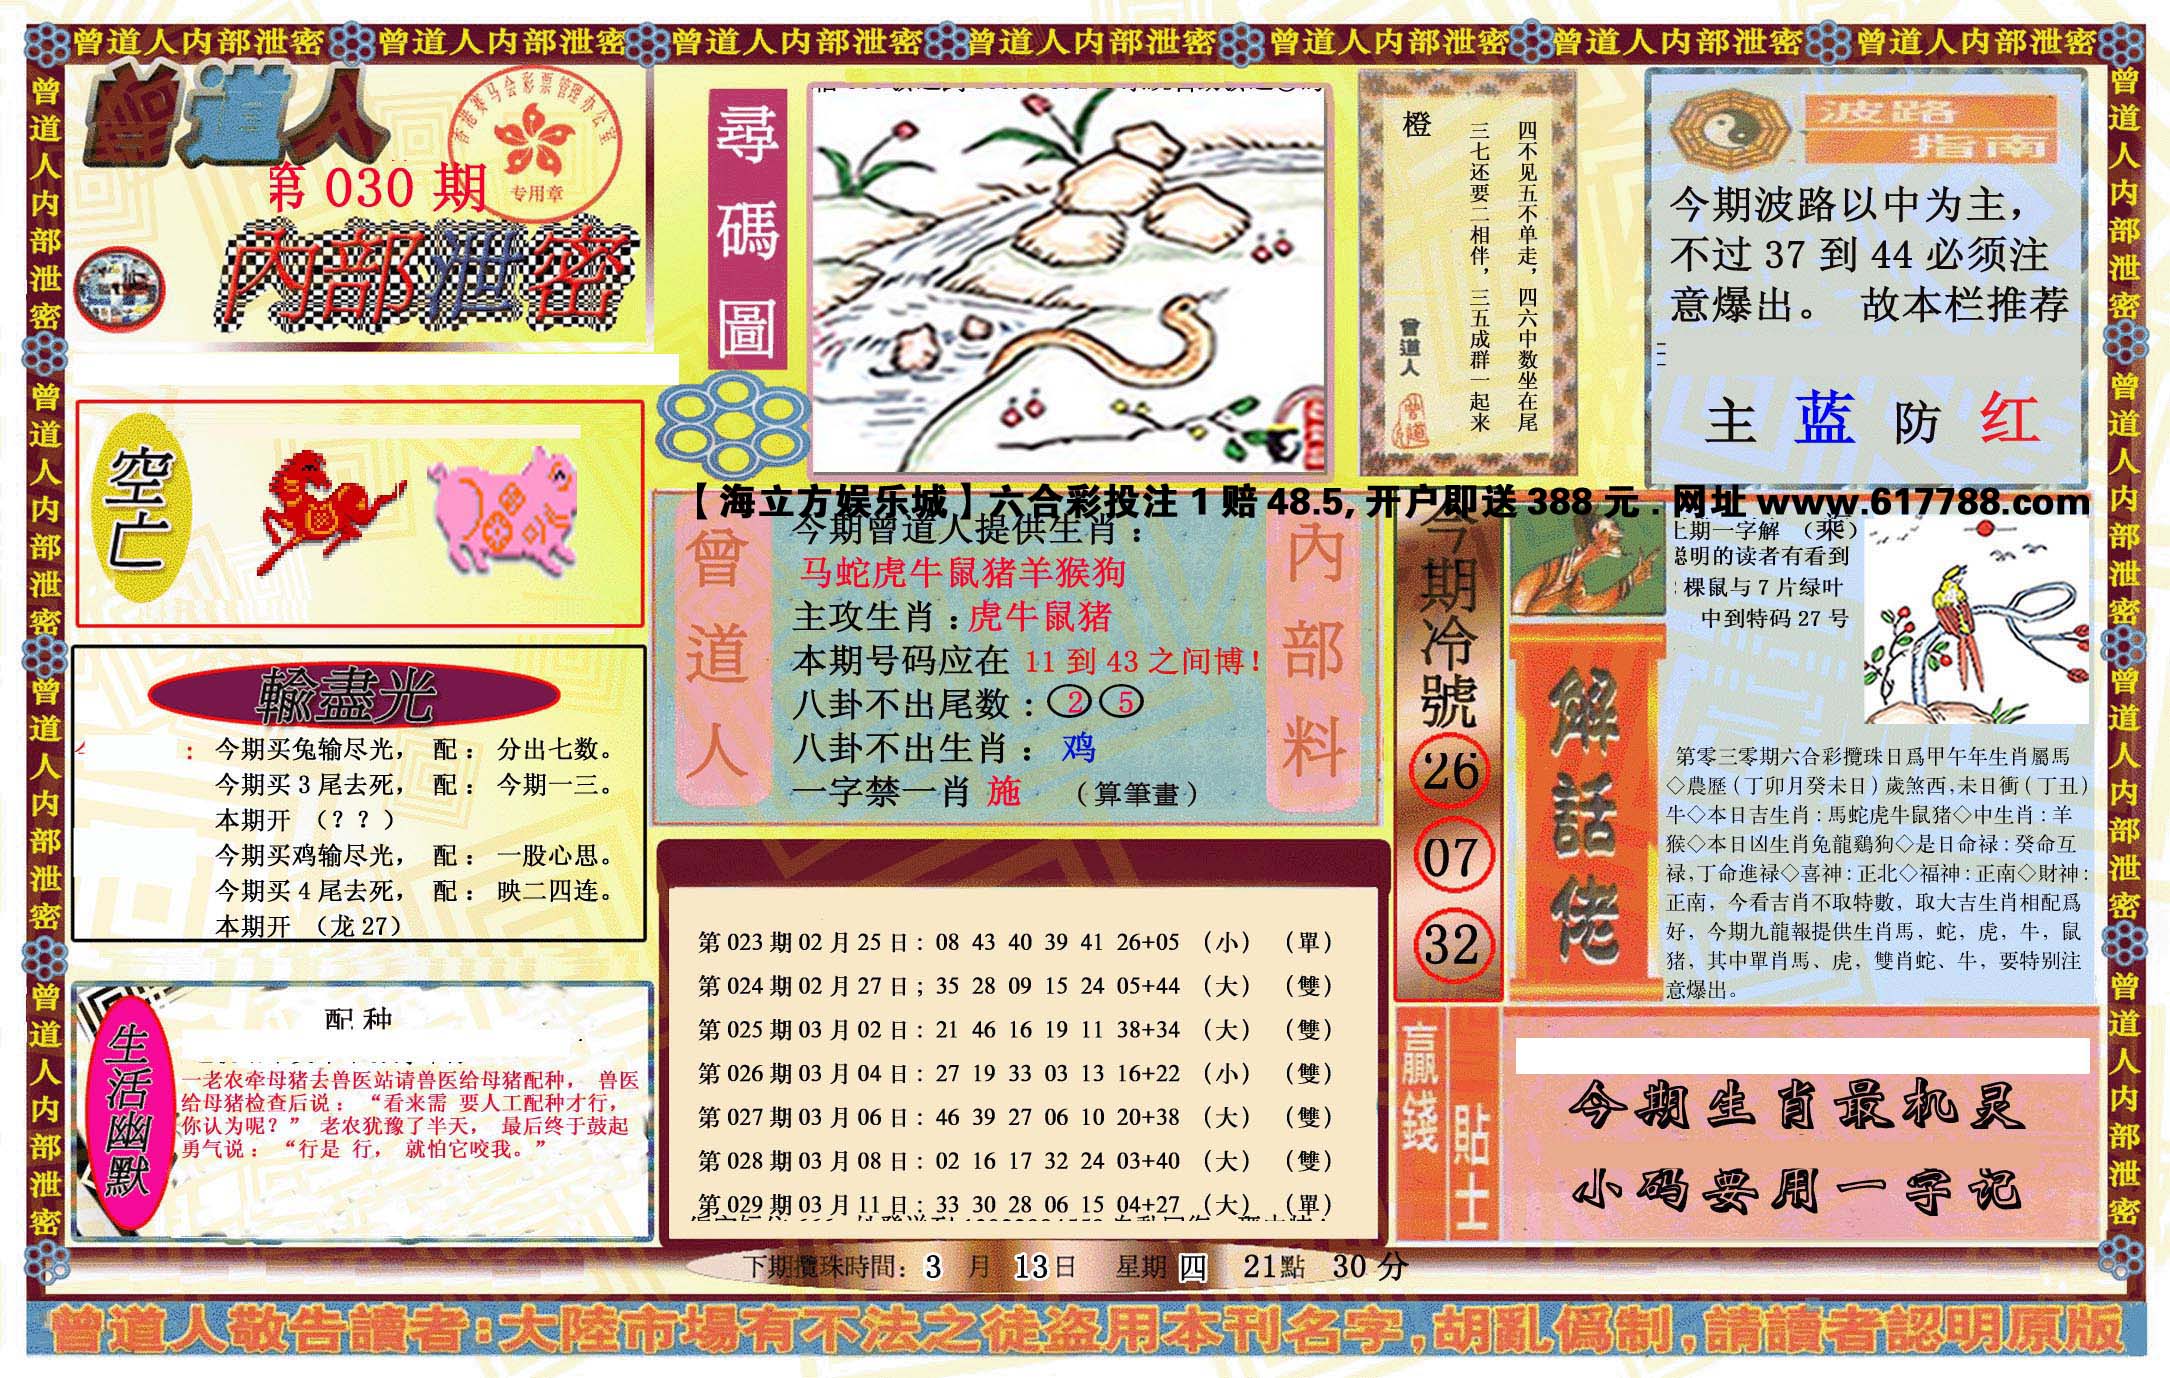 曾道人内部泄密 曾道人内部泄密 曾道人内部泄密 曾道人内部泄密 曾道人内部泄密 曾道人内部泄密 曾道人内部泄密
曾道人内部泄密 曾道人内部泄密 曾道人内部泄密 曾道人内部泄密
曾道人
香港赛马会彩票管理办公室
专用章
第 030 期
内部泄密
空亡
輸盡光
： 今期买兔输尽光， 配： 分出七数。
今期买 3 尾去死， 配： 今期一三。
本期开 （? ? ）
今期买鸡输尽光， 配： 一股心思。
今期买 4 尾去死， 配： 映二四连。
本期开 （龙 27）
生活幽默
配 种
一老农牵母猪去兽医站请兽医给母猪配种， 兽医
给母猪检查后说： “看来需 要人工配种才行，
你认为呢? ” 老农犹豫了半天， 最后终于鼓起
勇气说： “行是 行， 就怕它咬我。”
尋碼圖
四不见五不单走，四六中数坐在尾
三七还要二相伴，三五成群一起来
橙
曾道人
波路
指南
今期波路以中为主，
不过 37 到 44 必须注
意爆出。 故本栏推荐
主 蓝 防 红
【海立方娱乐城】六合彩投注 1 赔 48.5, 开户即送 388 元 . 网址 www.617788.com
曾道人
今期曾道人提供生肖：
马蛇虎牛鼠猪羊猴狗
主攻生肖：虎牛鼠猪
本期号码应在 11 到 43 之间博!
八卦不出尾数： 2 5
八卦不出生肖： 鸡
一字禁一肖 施 （算筆畫）
内部料
第 023 期 02 月 25 日: 08 43 40 39 41 26+05 （小） （單）
第 024 期 02 月 27 日; 35 28 09 15 24 05+44 （大） （雙）
第 025 期 03 月 02 日: 21 46 16 19 11 38+34 （大） （雙）
第 026 期 03 月 04 日: 27 19 33 03 13 16+22 （小） （雙）
第 027 期 03 月 06 日: 46 39 27 06 10 20+38 （大） （雙）
第 028 期 03 月 08 日: 02 16 17 32 24 03+40 （大） （雙）
第 029 期 03 月 11 日: 33 30 28 06 15 04+27 （大） （單）
今期冷號
26
07
32
解話佬
上期一字解 （乘）
聪明的读者有看到
棵鼠与 7 片绿叶
中到特码 27 号
第零三零期六合彩攪珠日爲甲午年生肖屬馬
◇農歷（丁卯月癸未日）歲煞西,未日衝（丁丑）
牛◇本日吉生肖:馬蛇虎牛鼠猪◇中生肖:羊
猴◇本日凶生肖兔龍鷄狗◇是日命禄:癸命互
禄,丁命進禄◇喜神:正北◇福神:正南◇財神:
正南，今看吉肖不取特數，取大吉生肖相配爲
好，今期九龍報提供生肖馬，蛇，虎，牛，鼠
猪，其中單肖馬、虎，雙肖蛇、牛，要特别注
意爆出。
贏錢
貼士
今期生肖最机灵
小码要用一字记
下期攪珠時間： 3 月 13 日 星期 四 21 點 30 分
曾道人内部泄密 曾道人内部泄密 曾道人内部泄密 曾道人内部泄密
曾道人敬告讀者:大陸市場有不法之徒盗用本刊名字,胡亂僞制,請讀者認明原版